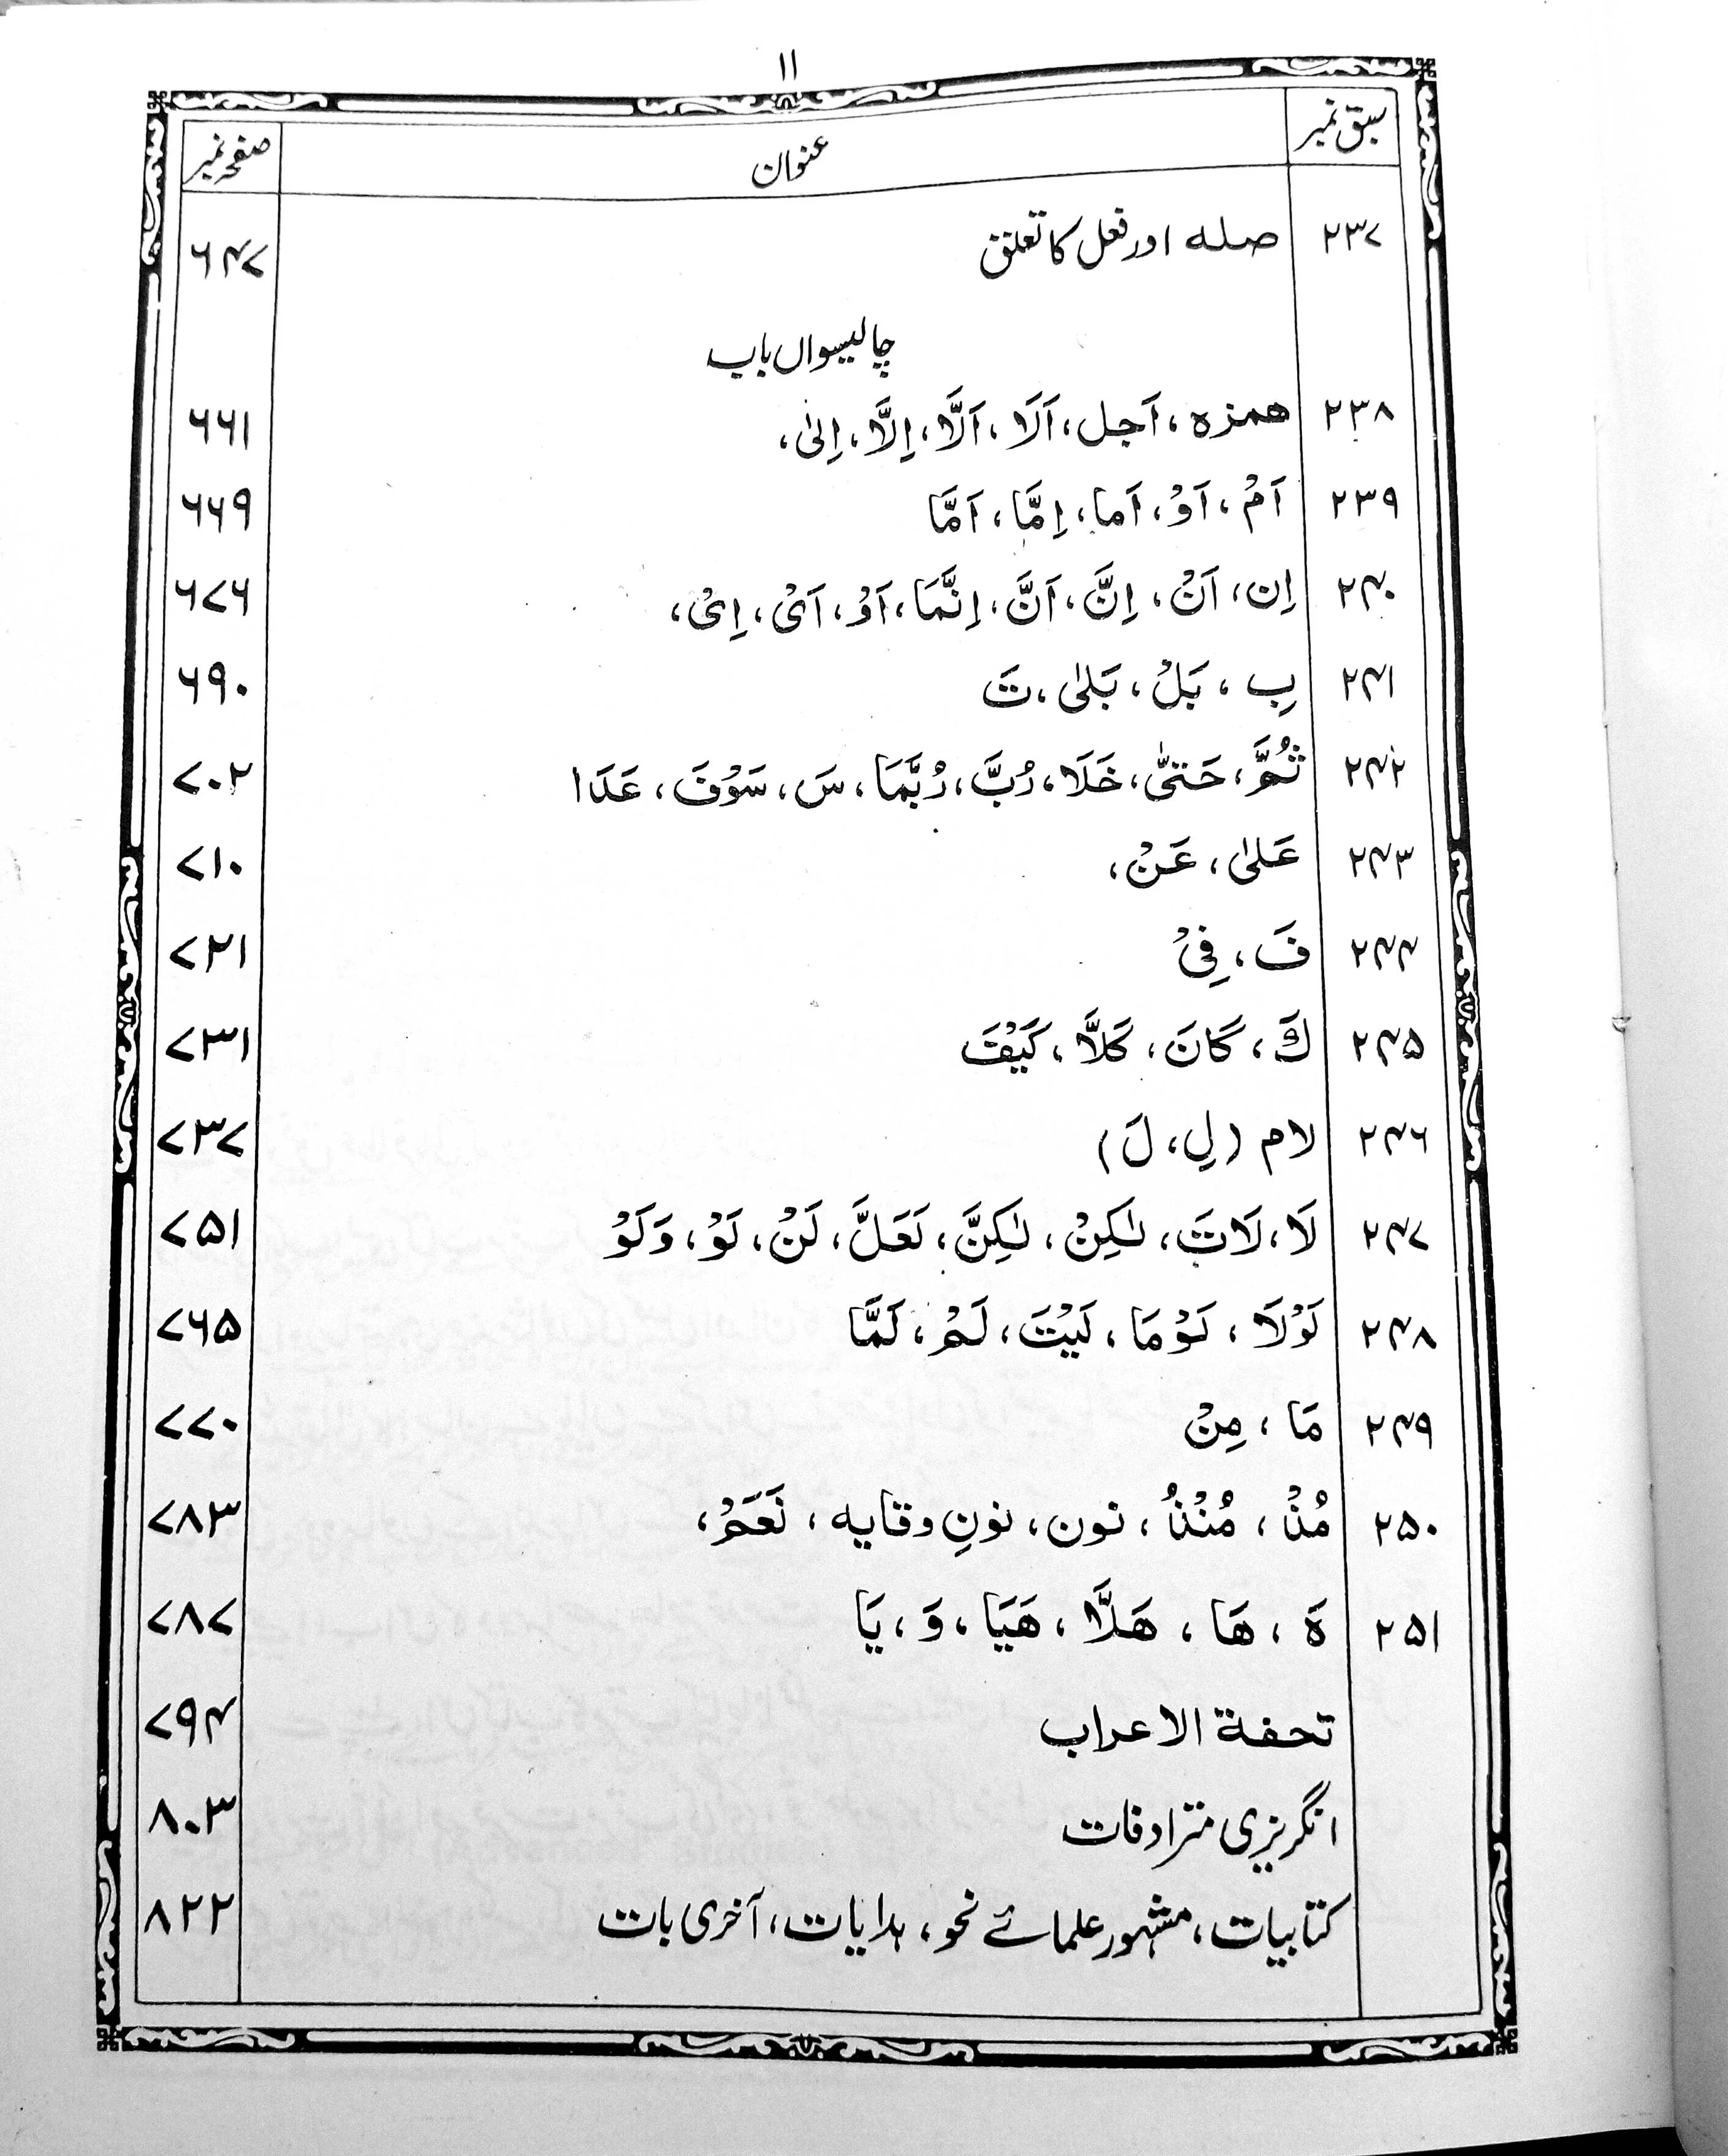 ۱۱
سبق نمبر عنوان صفحہ نمبر
۲۳۷ صلہ اور فعل کا تعلق ۶۴۷
چالیسواں باب
۲۳۸ ھمزہ، اَجل، اَلَا، اَلَّا، اِلَّا، اِلیٰ، ۶۶۱
۲۳۹ اَمْ، اَوْ، اَما، اِمَّا، اَمَّا ۶۶۹
۲۴۰ اِن، اَنْ، اِنَّ، اَنَّ، اِنَّمَا، اَوْ، اَیْ، اِیْ، ۶۷۶
۲۴۱ بِ، بَلْ، بَلیٰ، تَ ۶۹۰
۲۴۲ ثُمَّ، حَتیّٰ، خَلَا، رُبَّ، رُبَّمَا، سَ، سَوْفَ، عَدَا ۷۰۲
۲۴۳ عَلیٰ، عَنْ، ۷۱۰
۲۴۴ فَ، فِیْ ۷۲۱
۲۴۵ كَ، کَانَ، کَلاَّ، کَیْفَ ۷۳۱
۲۴۶ لام (لِ، لَ) ۷۳۷
۲۴۷ لَا، لَاتَ، لٰکِنْ، لٰکِنَّ، لَعَلَّ، لَنْ، لَوْ، وَلَوْ ۷۵۱
۲۴۸ لَوْلَا، لَوْمَا، لَیْتَ، لَمْ، لَمَّا ۷۶۵
۲۴۹ مَا، مِنْ ۷۷۰
۲۵۰ مُذْ، مُنْذُ، نون، نونِ وقایہ، نَعَمْ، ۷۸۳
۲۵۱ ہَ، ھَا، ھَلاَّ، ھَیَا، وَ، یَا ۷۸۷
تحفة الاعراب ۷۹۴
انگریزی مترادفات ۸۰۳
کتابیات، مشہور علمائے نحو، ہدایات، آخری بات ۸۲۲